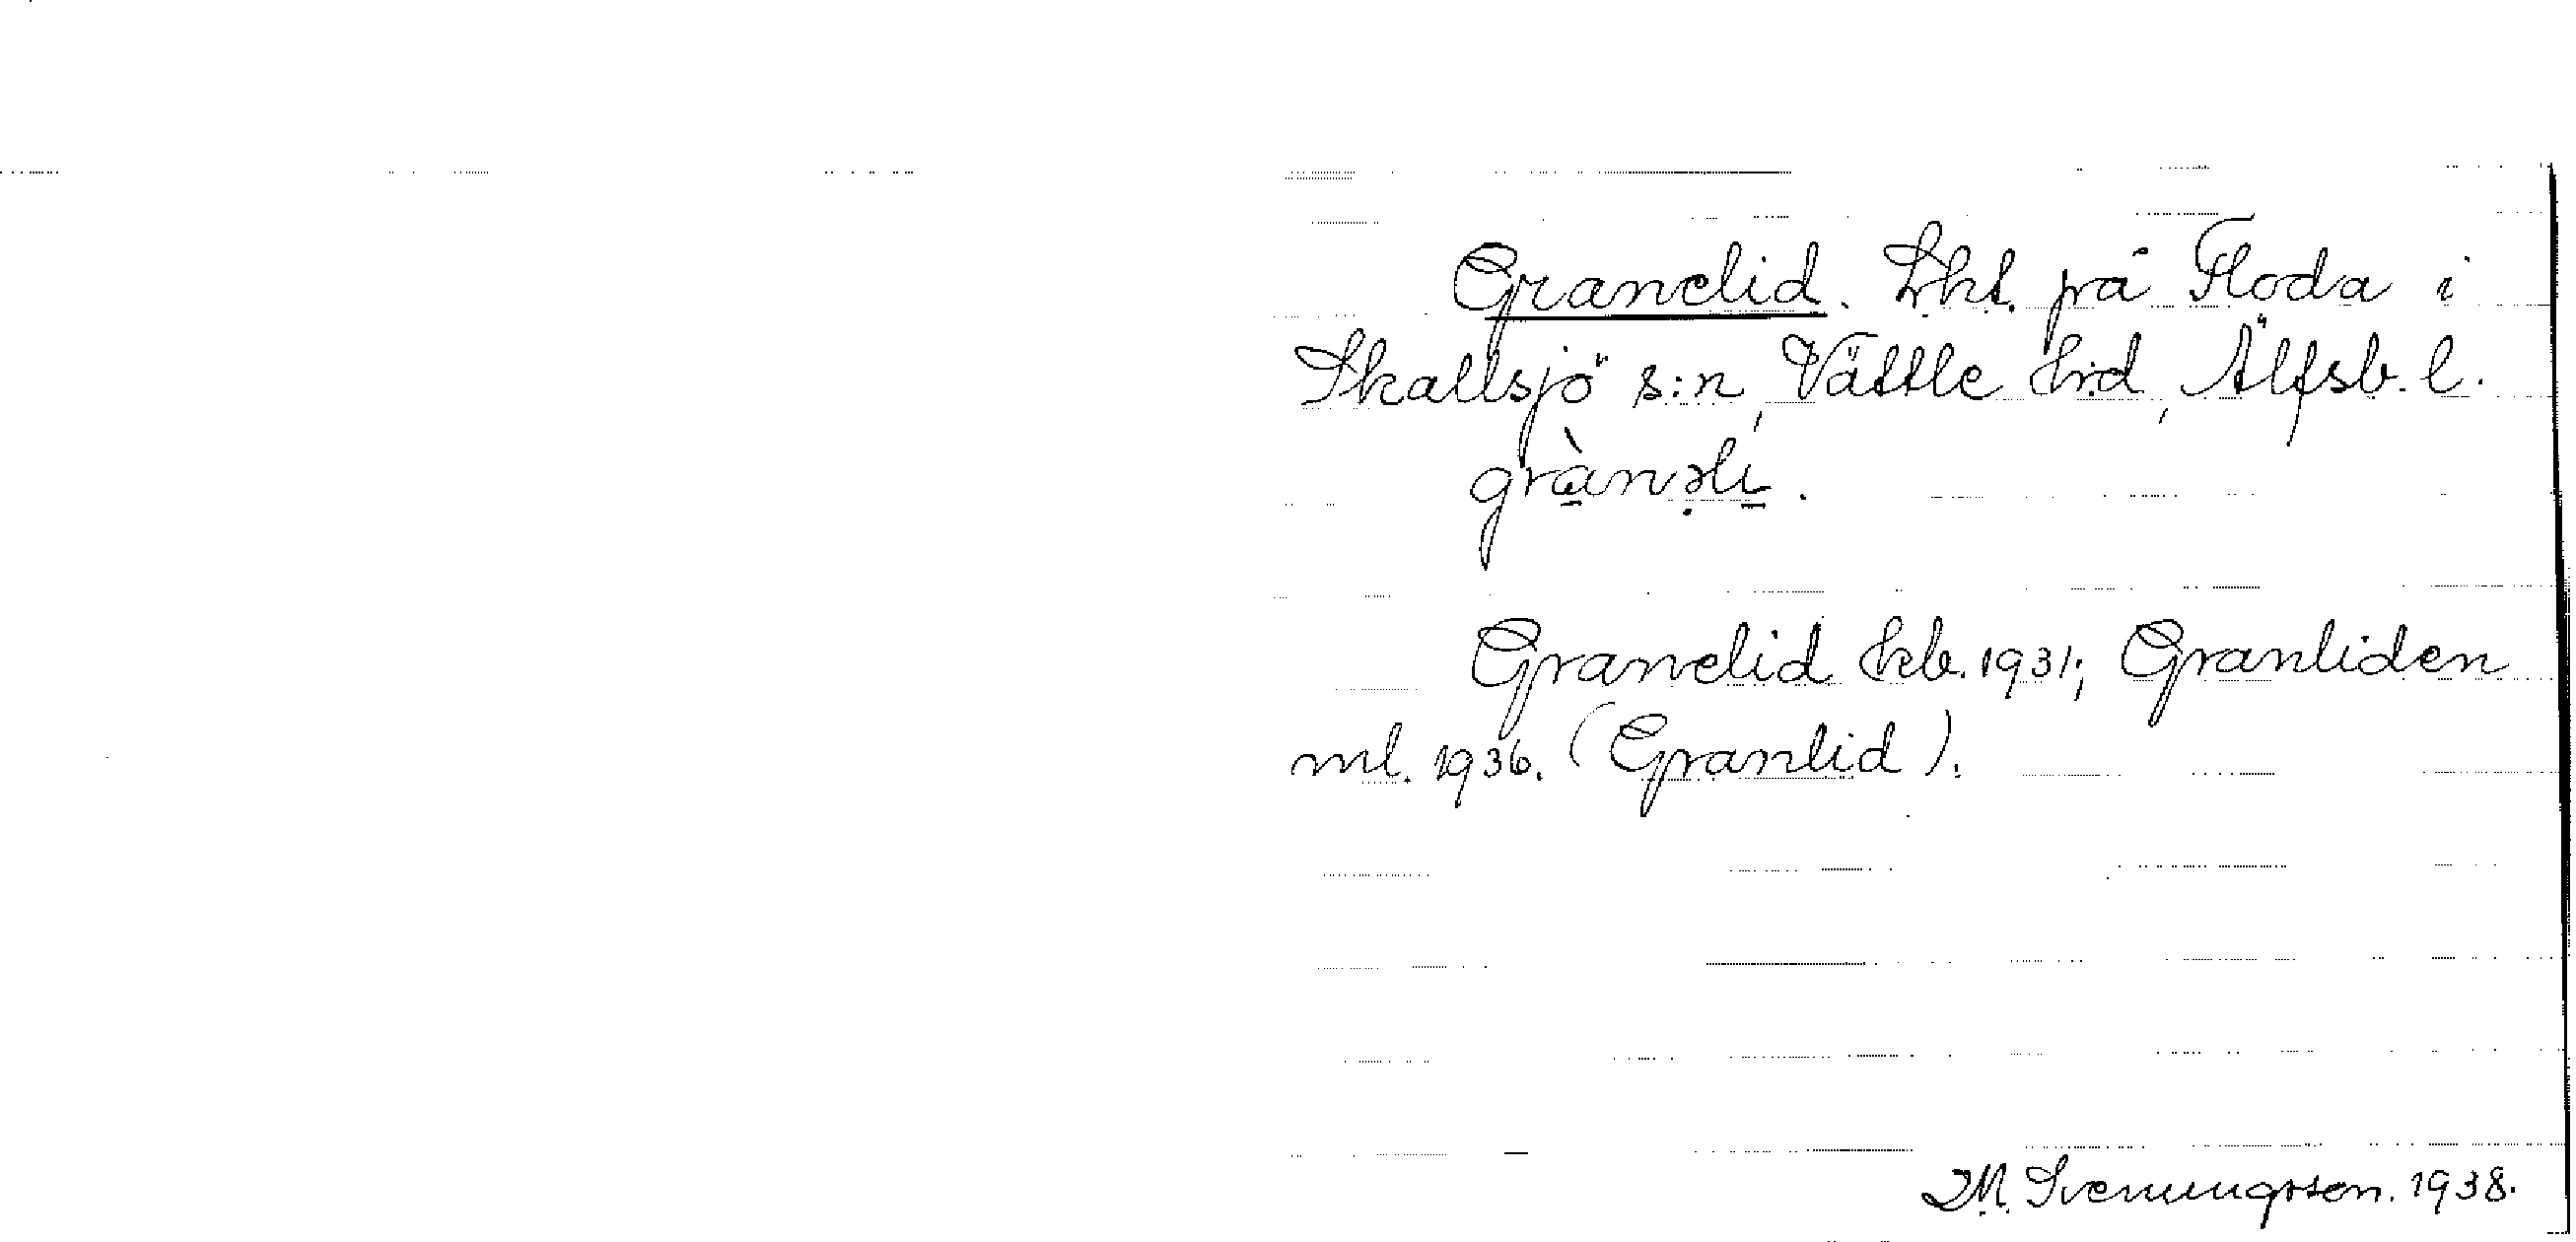 Granelid. Lht. på Floda i
Skallsjö s:n, Vättle hrd, Älfsb. l.
grànəli.
Granelid kb. 1931; Granliden
ml. 1936. (Granlid).
M. Svenungsson. 1938.